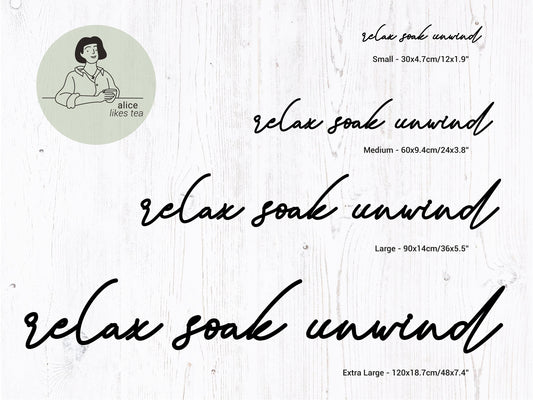 alice
likes tea
relax soak unwind
Small - 30x4.7cm/12x1.9"
relax soak unwind
Medium - 60x9.4cm/24x3.8"
relax soak unwind
Large - 90x14cm/36x5.5"
relax soak unwind
Extra Large - 120x18.7cm/48x7.4"